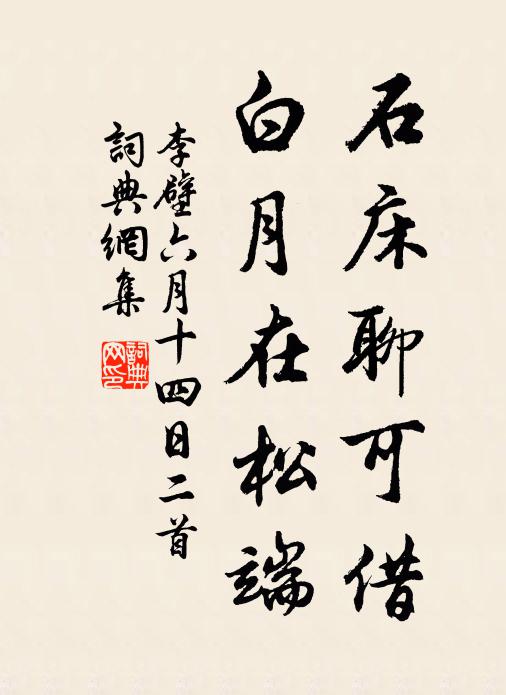 石床聊可借
白月在松端
李壁六月十四日二首
詞典網集
詞典網印